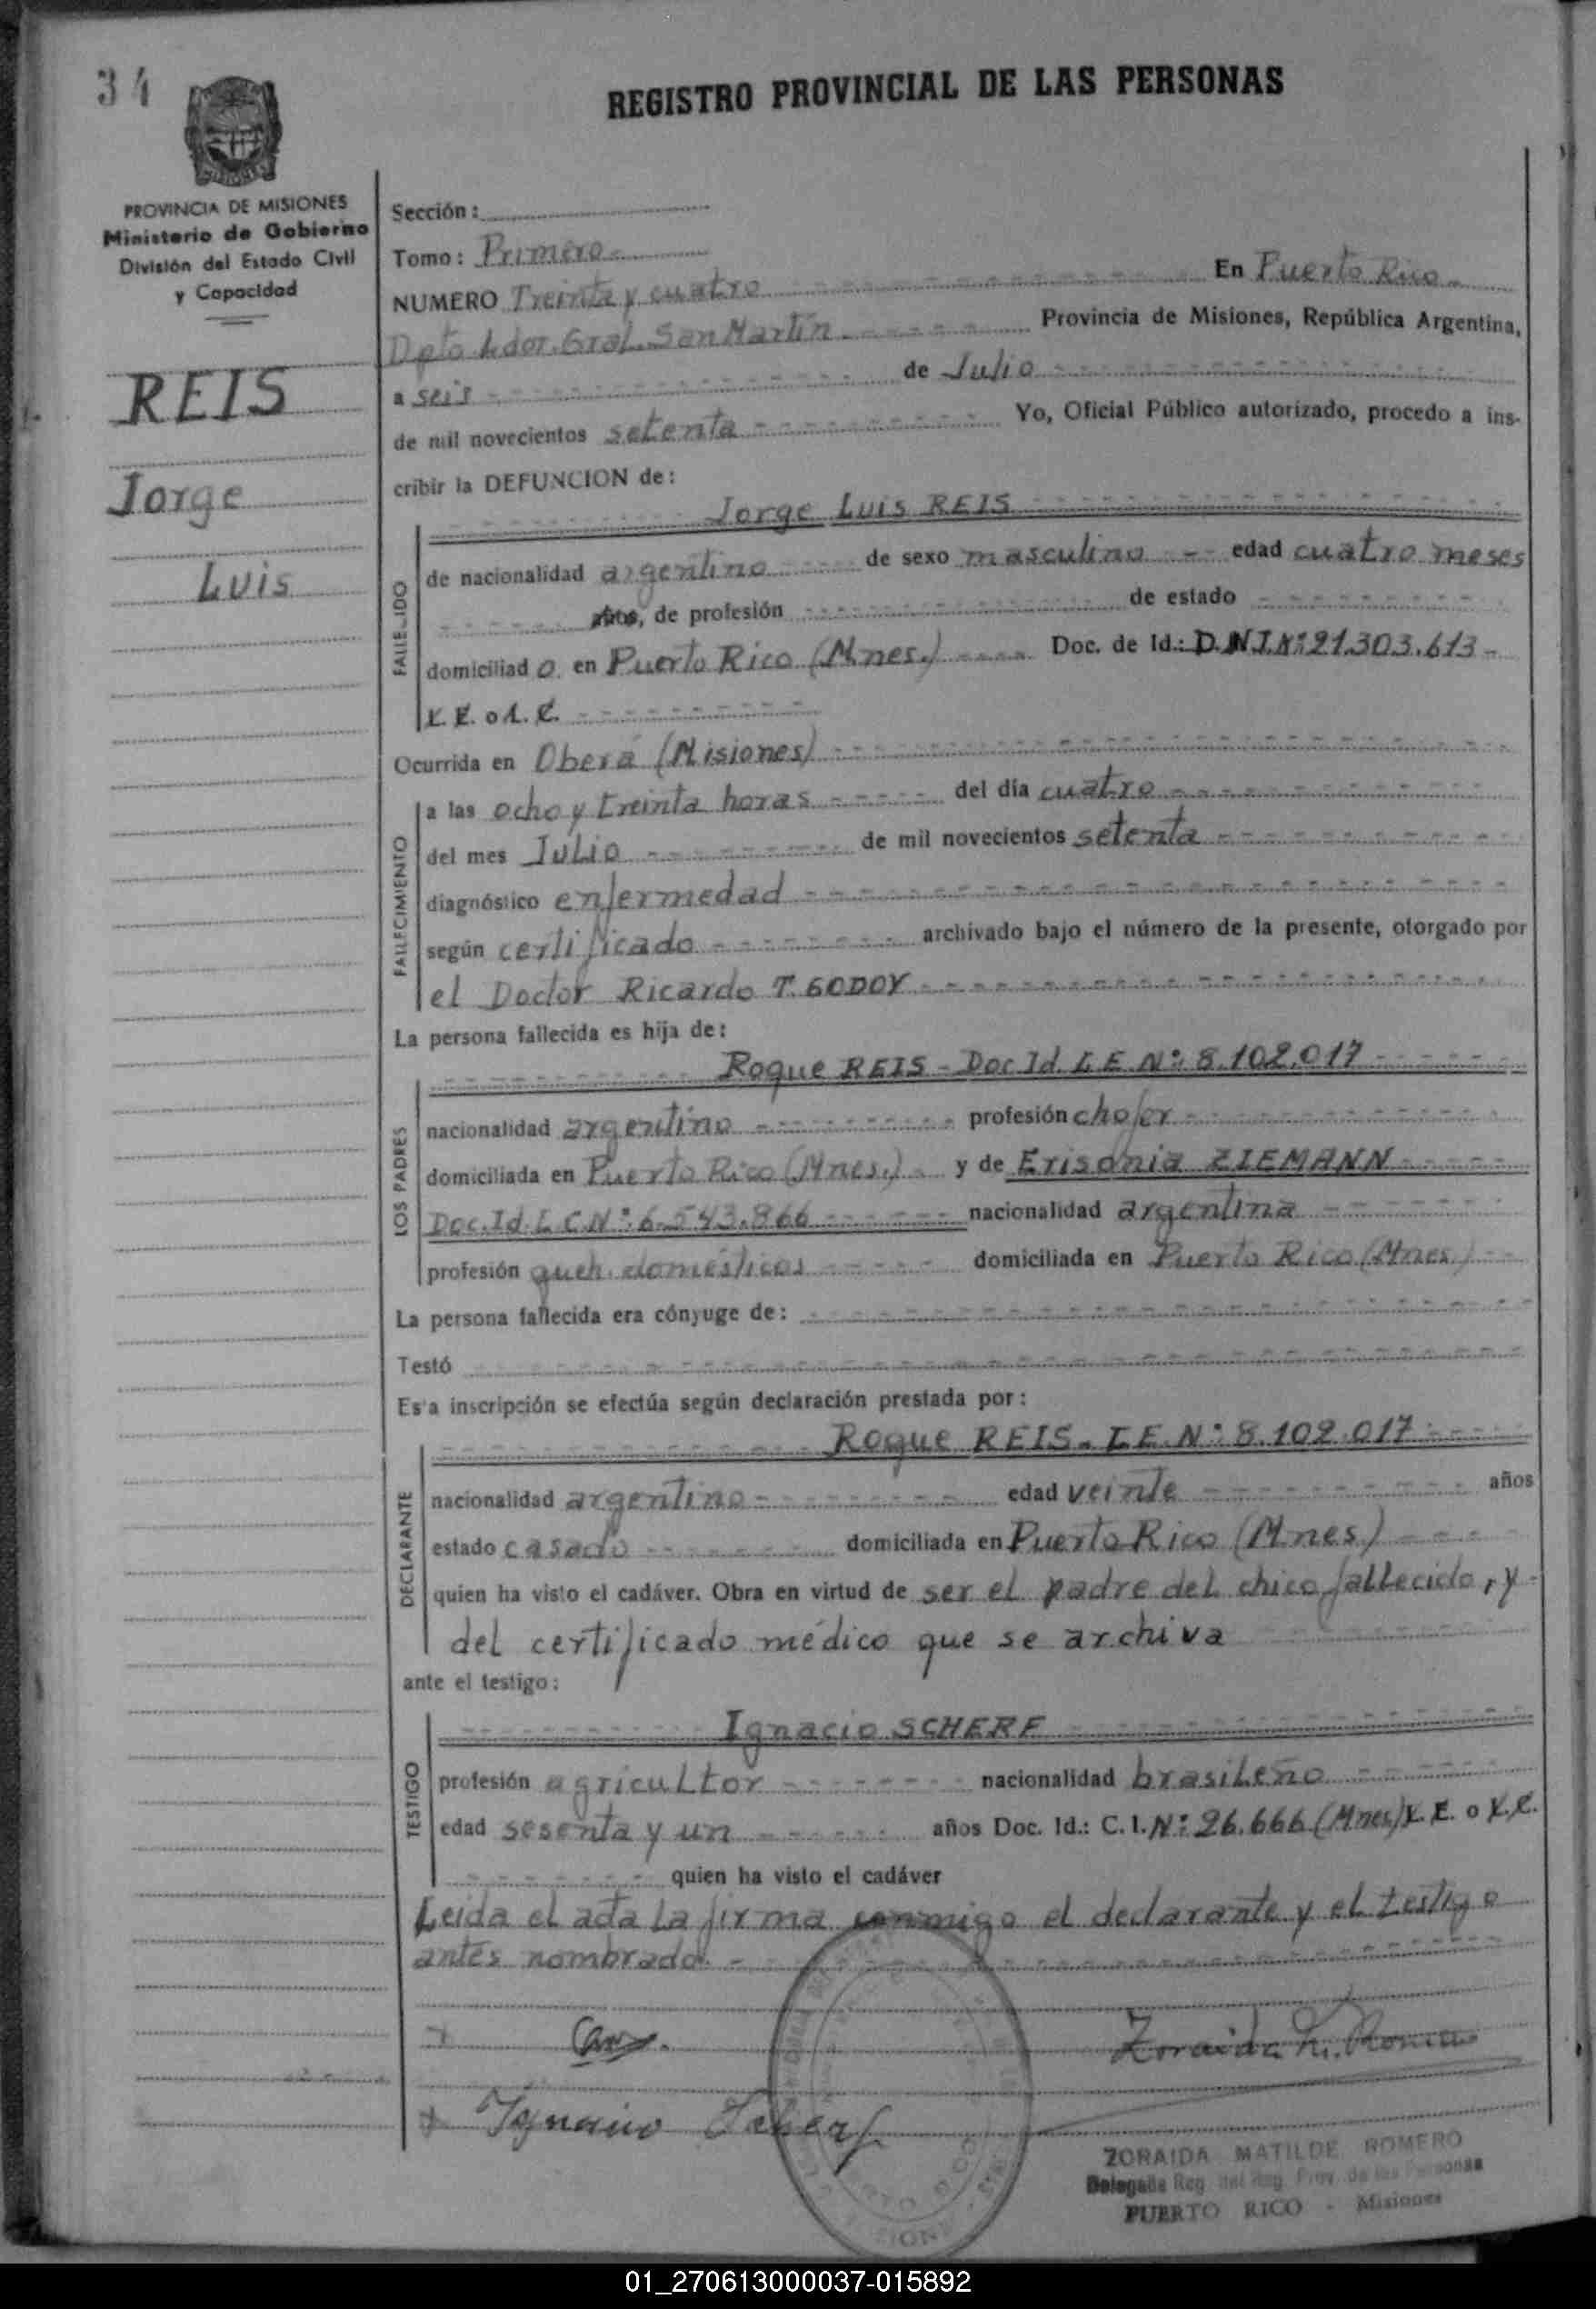 34
REGISTRO PROVINCIAL DE LAS PERSONAS
PROVINCIA DE MISIONES
Ministerio de Gobierno
División del Estado Civil
y Capacidad
REIS
Jorge
Luis
Sección:
Tomo: Primero
NUMERO Treinta y cuatro En Puerto Rico
Dpto. Ldor. Gral. San Martín Provincia de Misiones, República Argentina,
a seis de Julio
de mil novecientos setenta Yo, Oficial Público autorizado, procedo a ins-
cribir la DEFUNCION de:
Jorge Luis REIS
FALLECIDO
de nacionalidad argentino de sexo masculino edad cuatro meses
años, de profesión de estado
domiciliado en Puerto Rico (Mnes.) Doc. de Id.: D.N.I. Nº 21.303.613
L. E. o L. C.
Ocurrida en Oberá (Misiones)
FALLECIMIENTO
a las ocho y treinta horas del día cuatro
del mes Julio de mil novecientos setenta
diagnóstico enfermedad
según certificado archivado bajo el número de la presente, otorgado por
el Doctor Ricardo T. GODOY
La persona fallecida es hija de:
LOS PADRES
Roque REIS - Doc. Id. L.E. Nº: 8.102.017
nacionalidad argentino profesión chofer
domiciliada en Puerto Rico (Mnes.) y de Erisonia ZIEMANN
Doc. Id. L.C. Nº: 6.543.866 nacionalidad argentina
profesión queh. domésticos domiciliada en Puerto Rico (Mnes.)
La persona fallecida era cónyuge de:
Testó
Esta inscripción se efectúa según declaración prestada por:
DECLARANTE
Roque REIS - L.E. Nº: 8.102.017
nacionalidad argentino edad veinte años
estado casado domiciliada en Puerto Rico (Mnes)
quien ha visto el cadáver. Obra en virtud de ser el padre del chico fallecido, y
del certificado médico que se archiva
ante el testigo:
TESTIGO
Ignacio SCHERF
profesión agricultor nacionalidad brasileño
edad sesenta y un años Doc. Id.: C. I. Nº: 26.666 (Mnes) L. E. o L. C.
quien ha visto el cadáver
Leida el acta la firma conmigo el declarante y el testigo
antes nombrado.
Zoraida M. Romero
Ignacio Scherf
ZORAIDA MATILDE ROMERO
Delegada Reg. del Reg. Prov. de las Personas
PUERTO RICO - Misiones
01_270613000037-015892